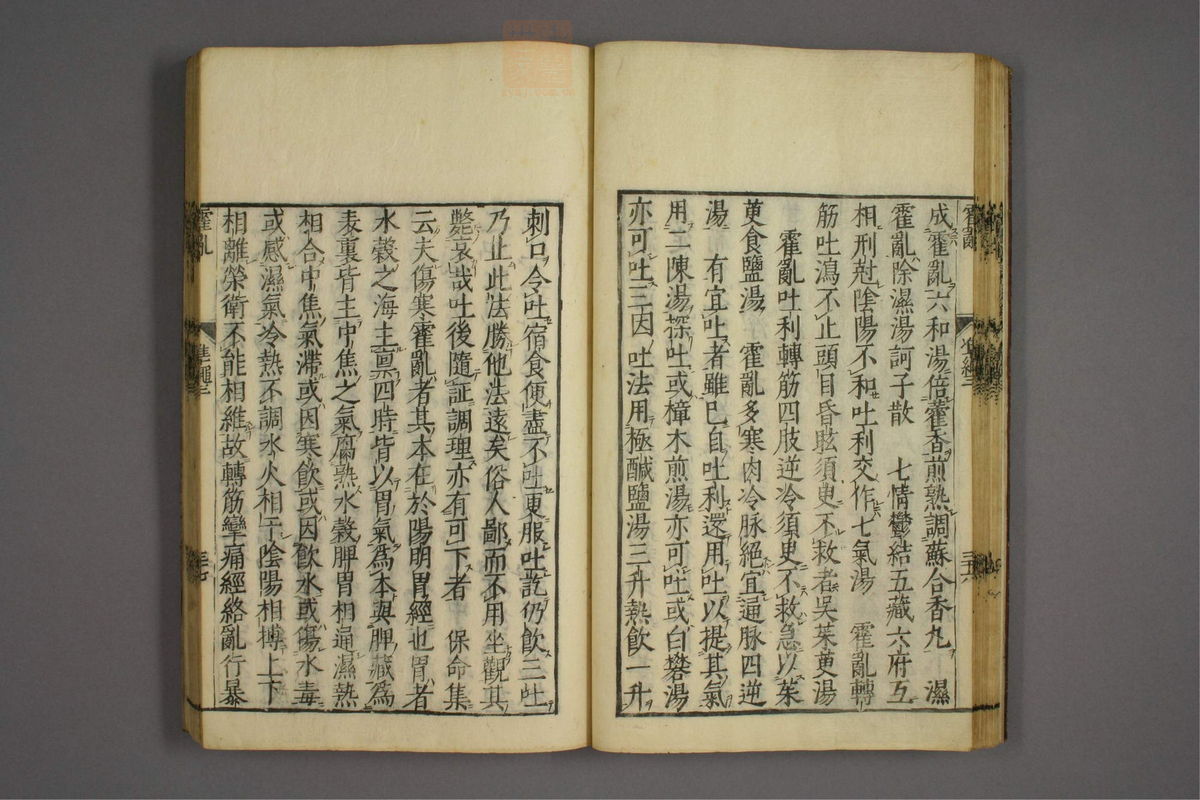 成霍亂六和湯倍藿香煎熟調蘇合香丸　濕
霍亂除濕湯訶子散　七情鬱結五藏六府互
相刑尅陰陽不和吐利交作七氣湯　霍亂轉
筋吐瀉不止頭目昏眩須臾不救者吳茱萸湯
霍亂吐利轉筋四肢逆冷須臾不救急以茱
萸食鹽湯　霍亂多寒肉冷脉絕宜通脉四逆
湯　有宜吐者雖已自吐利還用吐以提其氣
用二陳湯探吐或樟木煎湯亦可吐或白礬湯
亦可吐三因吐法用極醎鹽湯三升熱飲一升
刺口令吐宿食便盡不吐更服吐訖仍飲三吐
乃止此法勝他法遠矣俗人鄙而不用坐觀其
斃哀哉吐後隨証調理亦有可下者　保命集
云夫傷寒霍亂者其本在於陽明胃經也胃者
水穀之海主禀四時皆以胃氣為本與脾藏為
表裏皆主中焦之氣腐熟水穀脾胃相通濕熱
相合中焦氣滯或因寒飲或因飲水或傷水毒
或感濕氣冷熱不調水火相干陰陽相搏上下
相離榮衛不能相維故轉筋攣痛經絡亂行暴
霍亂